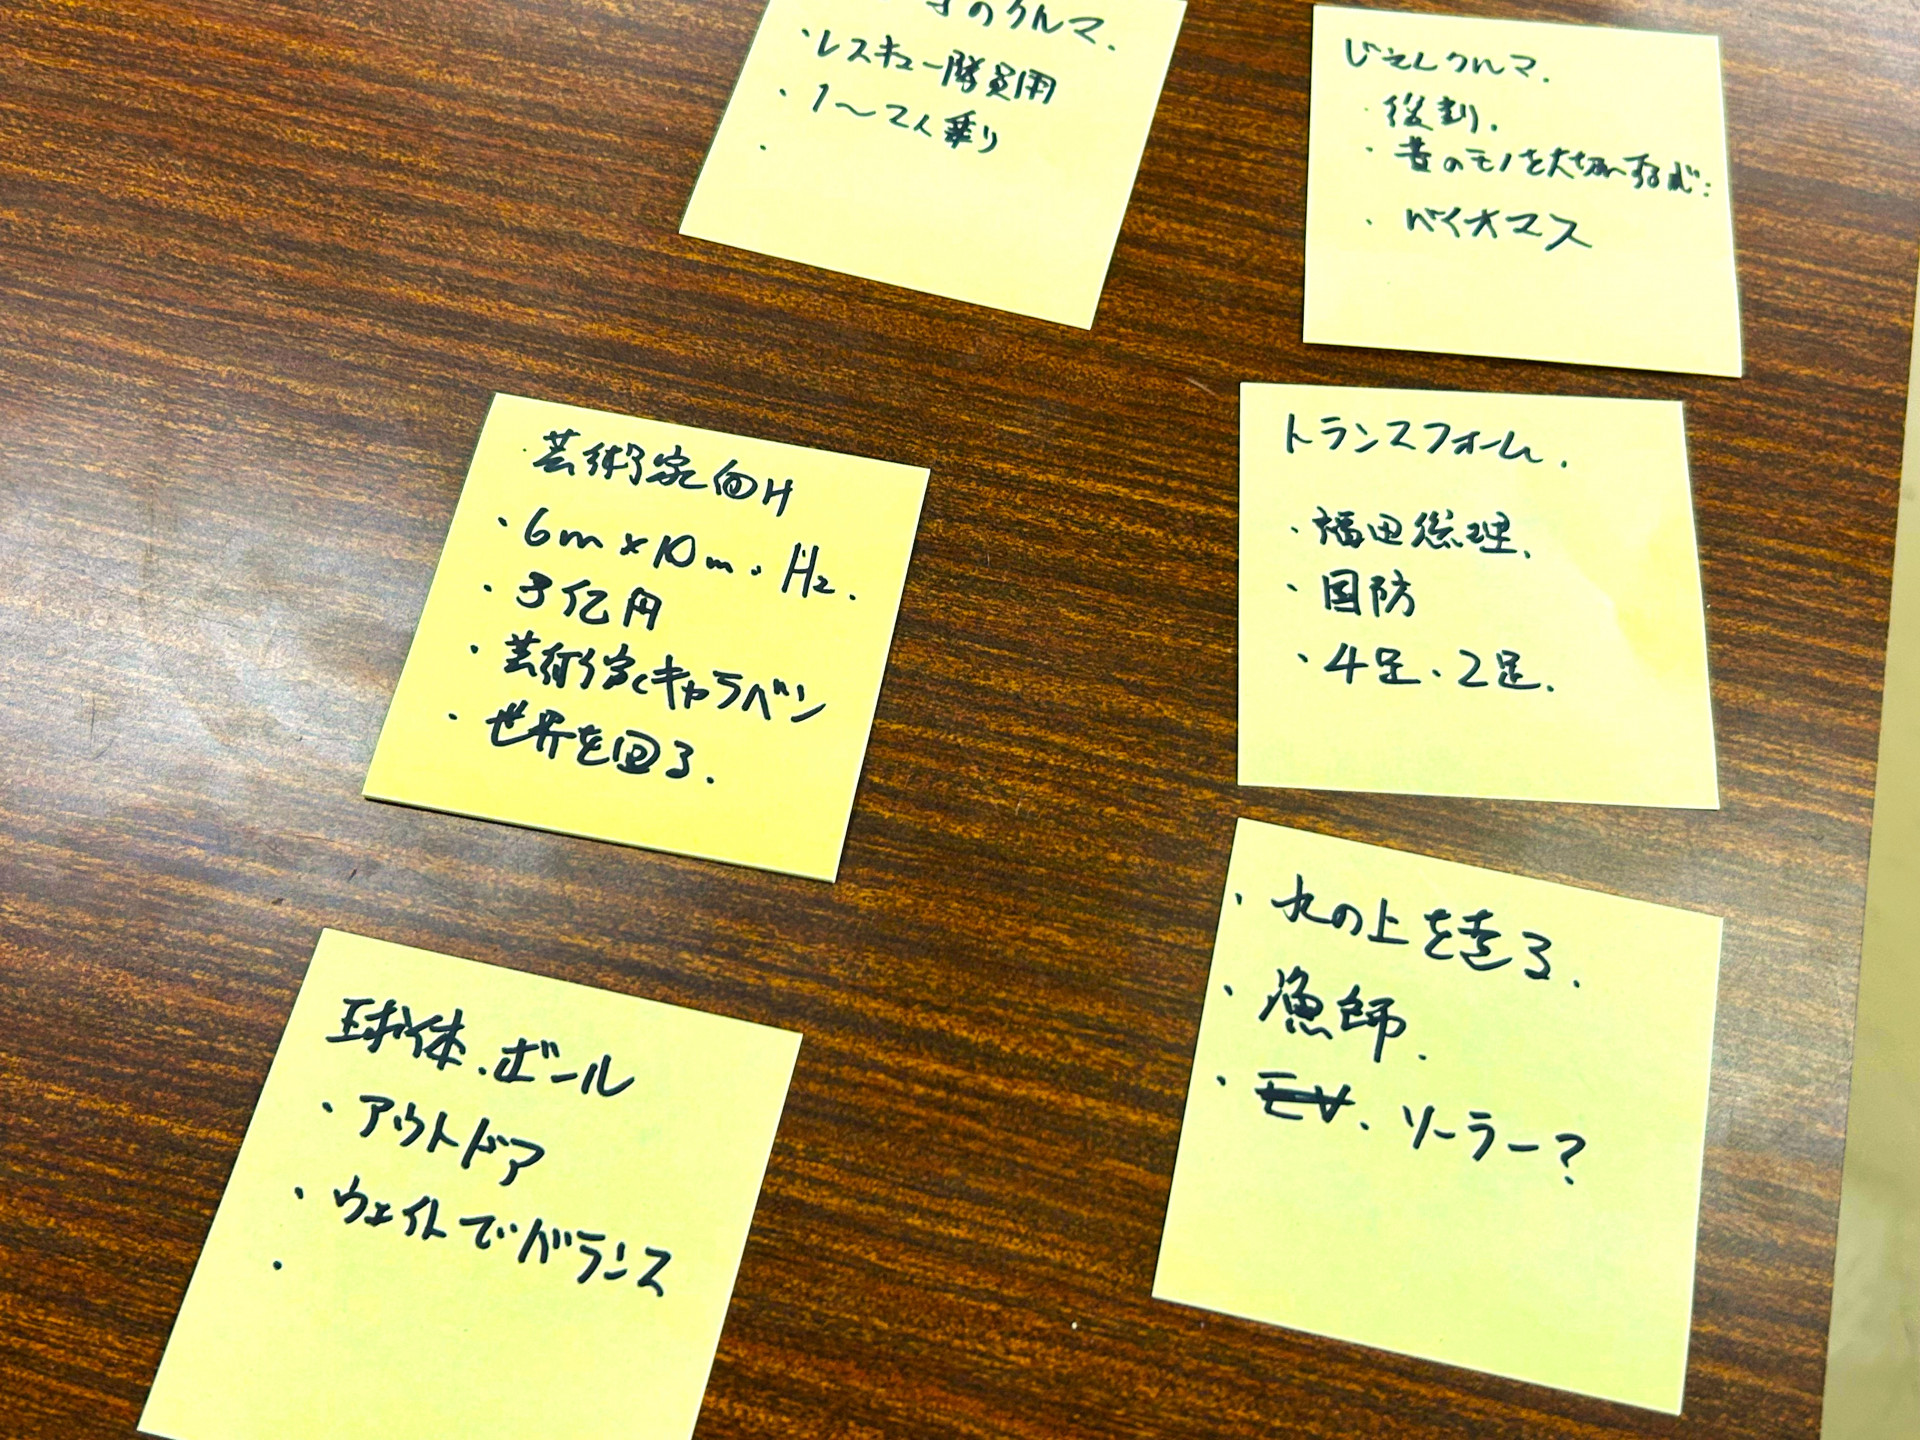 のクルマ.
・レスキュー隊員用
・1〜2人乗り
・
クルマ.
・役割.
・昔のモノを大切に
・バイオマス
・芸術家向け
・6m×10m・H2.
・3億円
・芸術家キャラバン
・世界を回る.
トランスフォーム.
・福田総理.
・国防
・4足、2足.
球体.ボール
・アウトドア
・ウェイトでバランス
・
・水の上を走る.
・漁師.
・ソーラー?